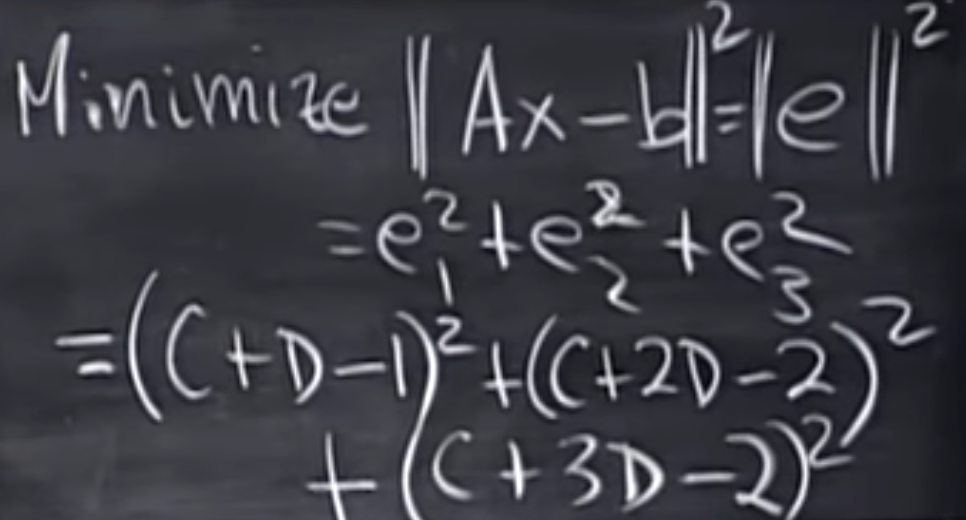 Minimize ||Ax-b||²=||e||²
=e₁²+e₂²+e₃²
=(C+D-1)²+(C+2D-2)²
+(C+3D-2)²